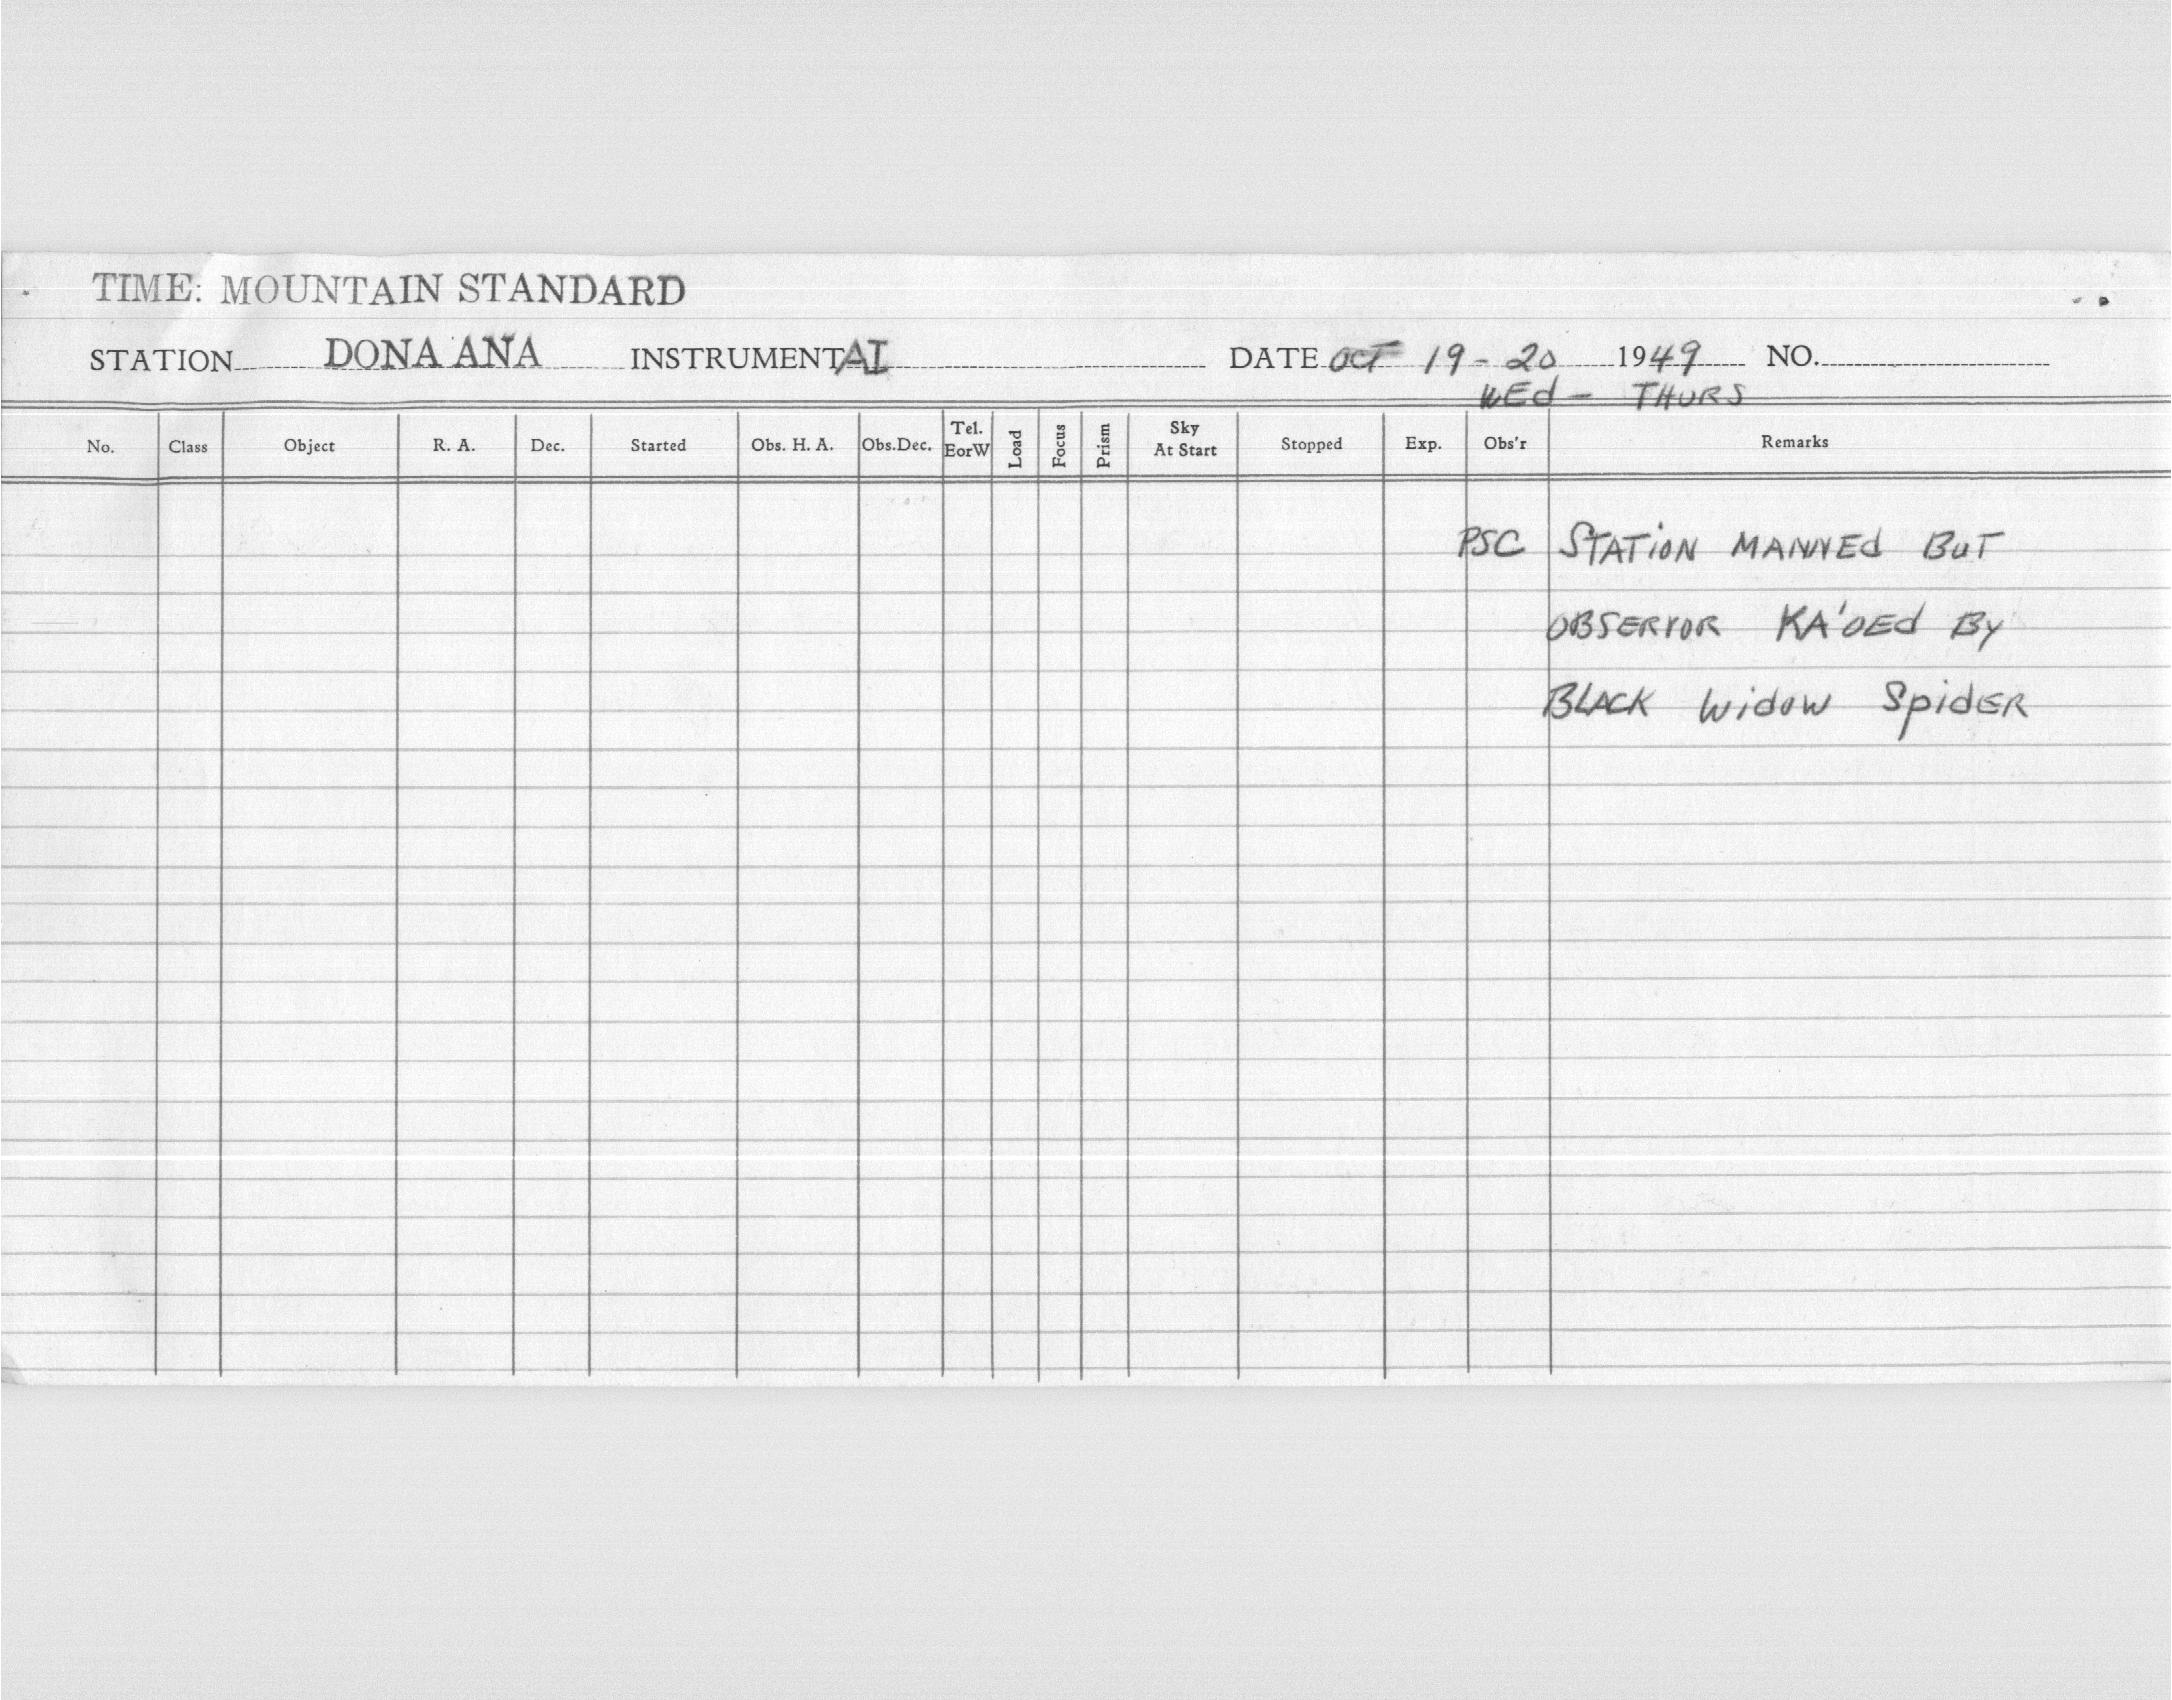 TIME: MOUNTAIN STANDARD
STATION DONA ANA INSTRUMENT AI DATE OCT 19 - 20 1949 NO.
WEd - THURS
No. Class Object R. A. Dec. Started Obs. H. A. Obs.Dec. Tel. EorW Load Focus Prism Sky At Start Stopped Exp. Obs'r Remarks
PSC STATiON MANNEd BuT
OBSERVOR KA'OEd By
BLACK WidoW SpidER